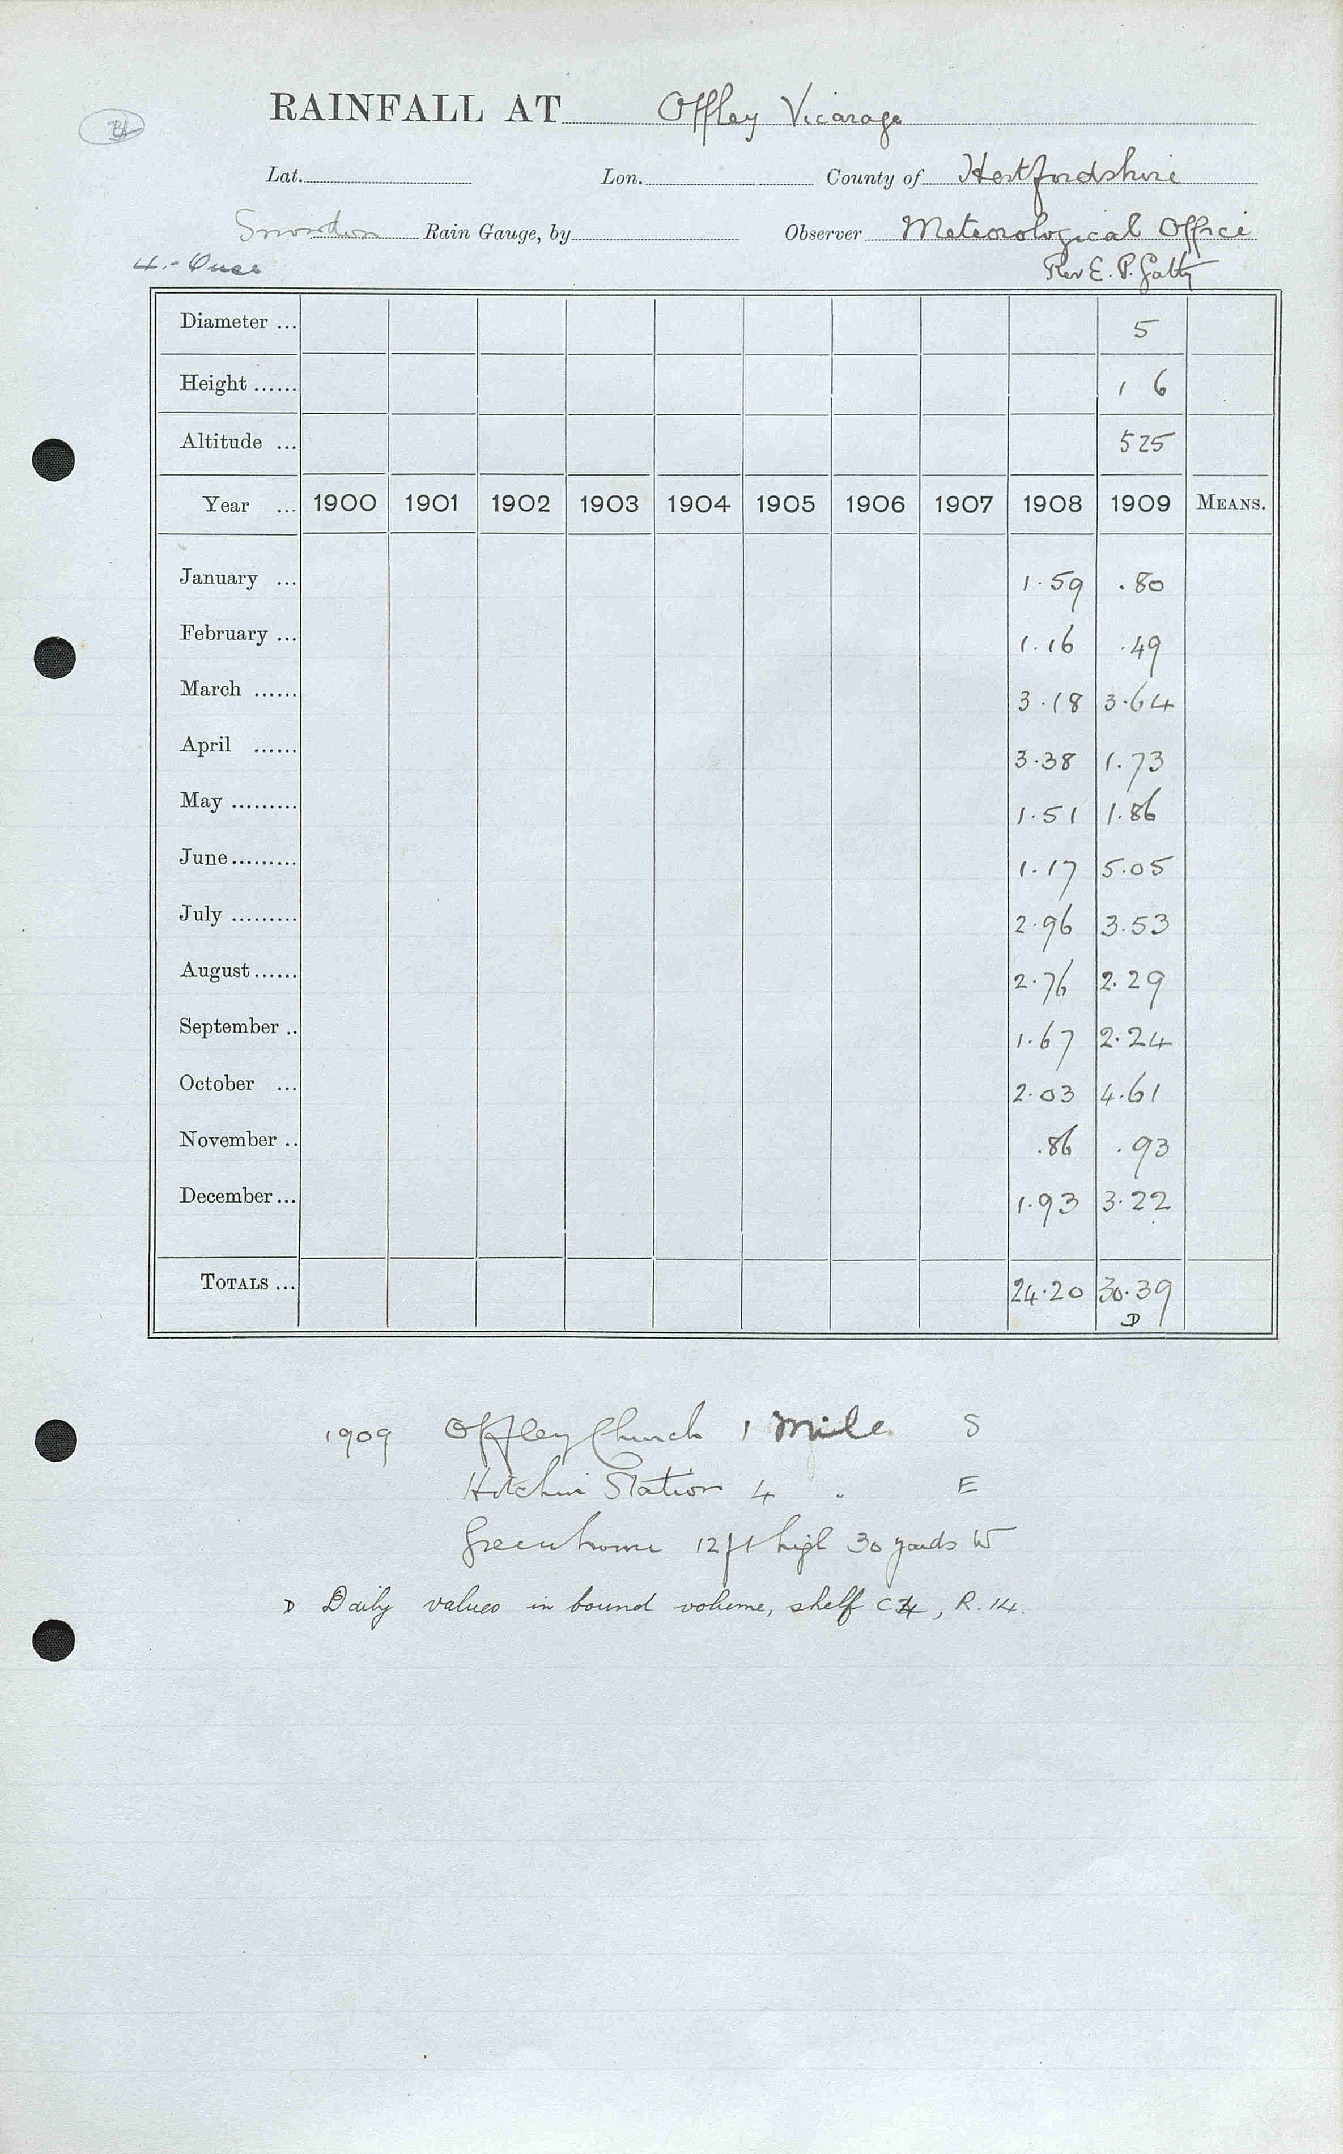 RAINFALL AT Offley Vicarage
Lat. Lon. County of Hertfordshire
Snowdon Rain Gauge, by Observer Meteorological Office
4.- Ouse Rev E. P. Gatty
Diameter ... 5
Height ...... 1 6
Altitude ... 525
Year ... 1900 1901 1902 1903 1904 1905 1906 1907 1908 1909 MEANS.
January ... 1.59 .80
February ... 1.16 .49
March ...... 3.18 3.64
April ...... 3.38 1.73
May ......... 1.51 1.86
June ......... 1.17 5.05
July ......... 2.96 3.53
August ...... 2.76 2.29
September .. 1.67 2.24
October ... 2.03 4.61
November .. .86 .93
December ... 1.93 3.22
TOTALS ... 24.20 30.39
D
1909 Offley Church 1 Mile S
Hitchin Station 4 " E
Greenhouse 12 ft high 30 yards W
D Daily values in bound volume, shelf C4, R.14.